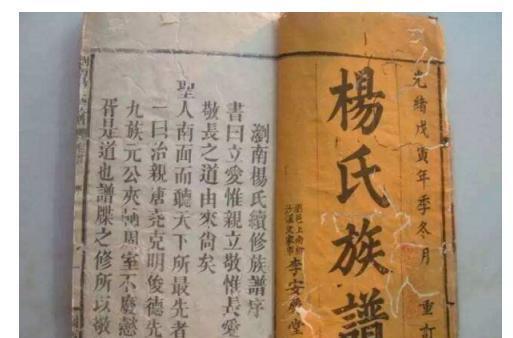 光緒戊寅年季冬月 重訂
楊氏族譜
瀏南楊氏續修族譜序
書曰立愛惟親立敬惟長愛
敬長之道由來尙矣
聖
人南面而聽天下所最先者
一曰治親堯克明俊德先
九族元公夾輔周室不廢懿
胥是道也譜牒之修所以敬